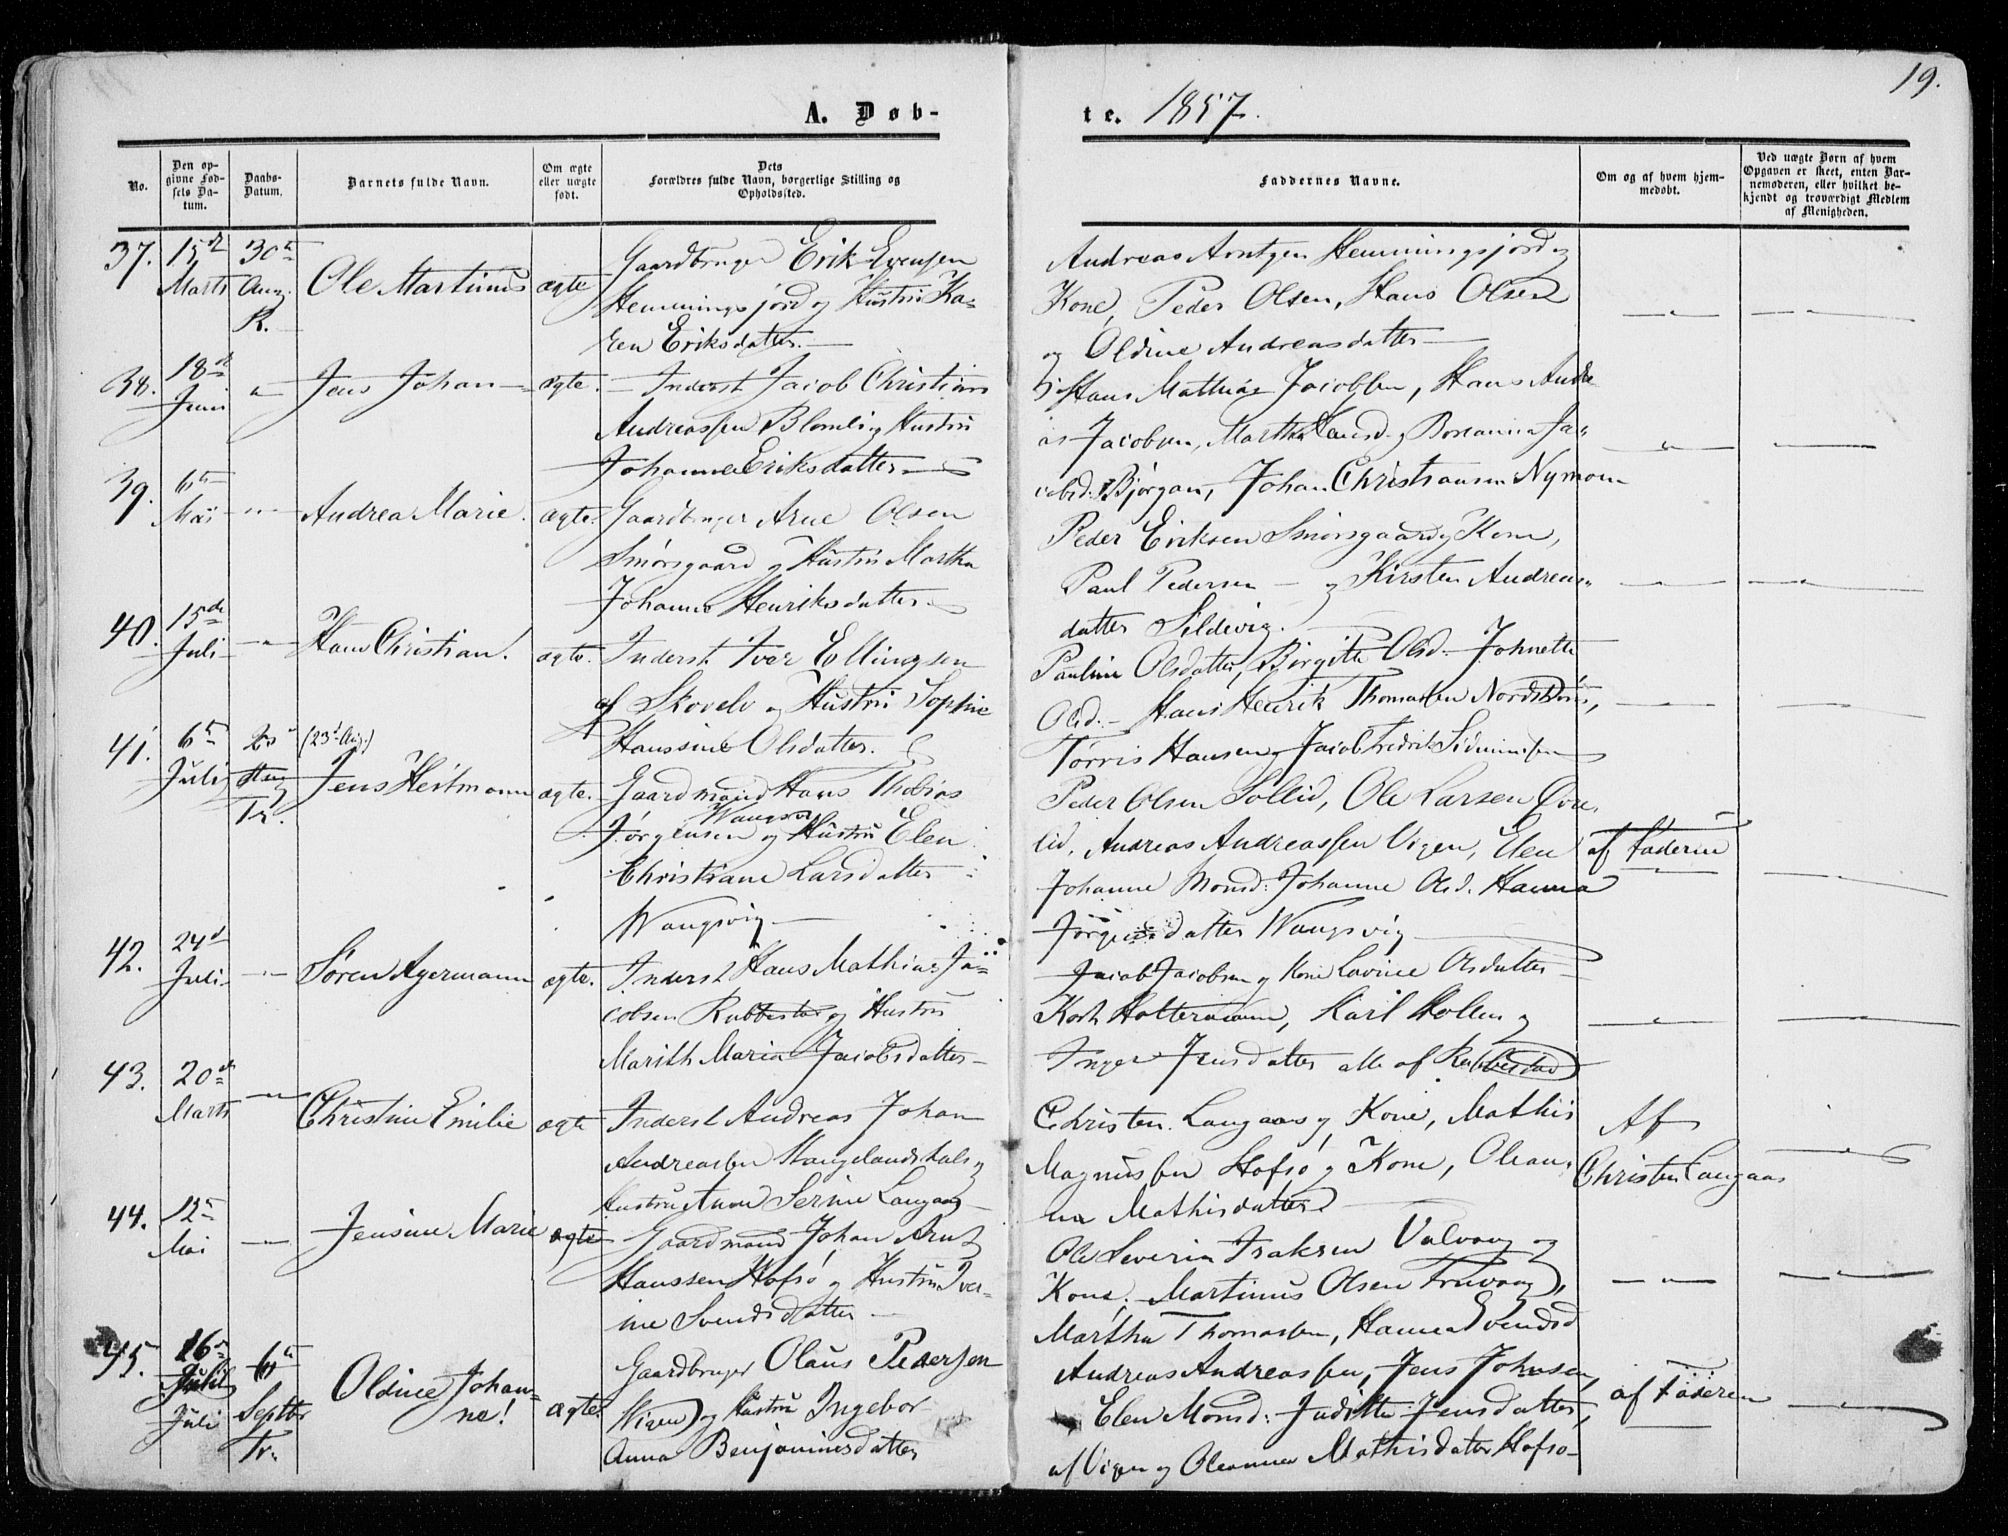 19.
A. Døb-
te. 1857.
No.
Den op-
givne Fød-
sels Da-
tum.
Daabs-
Datum.
Barnets fulde Navn.
Om ægte
eller uægte
født.
Dets
Forældres fulde Navn, borgerlige Stilling og
Opholdssted.
Faddernes Navne.
Om og af hvem hjem-
medøbt.
Ved uægte Børn af hvem
Opgaven er skeet, enten Bar-
nemoderen, eller hvilket be-
kjendt og troværdigt Medlem
af Menigheden.
37.
15de
Marts
30te
Aug.
R.
Ole Martinus
ægte
Gaardbruger Erik Evensen
Hemmingsjord og Hustru Ka-
ren Eriksdatter.
Andreas Arntzen Hemmingsjord og
Kone, Peder Olsen, Hans Olsen
og Oldine Andreasdatter
38.
18de
Juni
"
Jens Johan
ægte.
Inderst Jacob Christian
Andreassen Blomli og Hustru
Johanna Eriksdatter
Hans Mathias Jacobsen, Hans Andre
as Jacobsen, Martha Hansd. og Ja-
cobsd: Bjørgan, Johan Christiansen Nymoen
39.
6te
Mai
"
Andrea Marie.
ægte.
Gaardbruger Arne Olsen
Smørsgaard og Hustru Martha
Johanna Henriksdatter.
Peder Eriksen Smørsgaard og Kone,
Paul Pedersen – og Kirsten Andreas-
datter Sildevig.
40.
15de
Juli
"
Hans Christian.
ægte.
Inderst Iver Ellingsen
af Skovelv og Hustru Sophie
Hanssine Olsdatter.
Pauline Olsdatter, Birgitte Olsd. Johnette
Olsd. – Hans Henrik Thomassen
Tørris Hansen og Jacob Fredrik
41.
6te
Juli
(23de Aug.)
Aug
Tr.
Jens Heitmann
ægte.
Gaardmand Hans Thobias
Jørgensen og Hustru Elen
Christiane Larsdatter
Wangsvig
Peder Olsen Sollid, Ole Larsen
lid, Andreas Andreassen Vigen, Elen
Johanne Monsd: Johanne Olsd. Hanna
Jørgensdatter Wangsvig
af Faderen
42.
24de
Juli
"
Søren Agermann
ægte.
Inderst Hans Mathias Ja-
cobsen Rubbestad og Hustru
Marith Maria Jacobsdatter
Jacob Jacobsen og Kone Lavine Olsdatter
Holtermann, Karl Hollen og
Inger Jensdatter alle af Rubbestad
43.
20de
Marts
"
Christine Emilie
ægte
Inderst Andreas Johan
Andreassen Stangelandshals og
Hustru Anne Serine Langaas
Christen Langaas og Kone, Mathis
Magnussen Hofsø og Kone, Olean-
na Mathisdatter
Af
Christen Langaas
44.
12te
Mai
Jensine Marie
ægte
Gaardmand Johan Arnt
Hanssen Hofsø og Hustru Iver-
ine Svendsdatter
Ole Severin Isaksen Valvaag og
Kone, Martinus Olsen Truvaag,
Martha Thomassen, Hanna Svendsd
45.
26de
Juli
6te
Septbr
Tr.
Oldine Johan-
ne!
ægte
Gaardbruger Olaus Pedersen
Vigen og Hustru Ingebor
Anna Benjaminsdatter
Andreas Andreassen, Jens Johnsen,
Elen Monsd: Judithe Jensdatter,
af Vigen og Oleanna Mathisdatter Hofsø
af Faderen